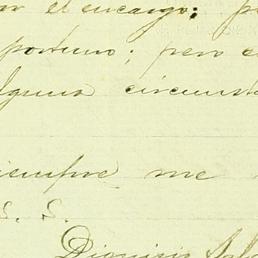 el encargo; p
portuno; pero e
lguna circunsta
iempre me
S. S.
Dionisio